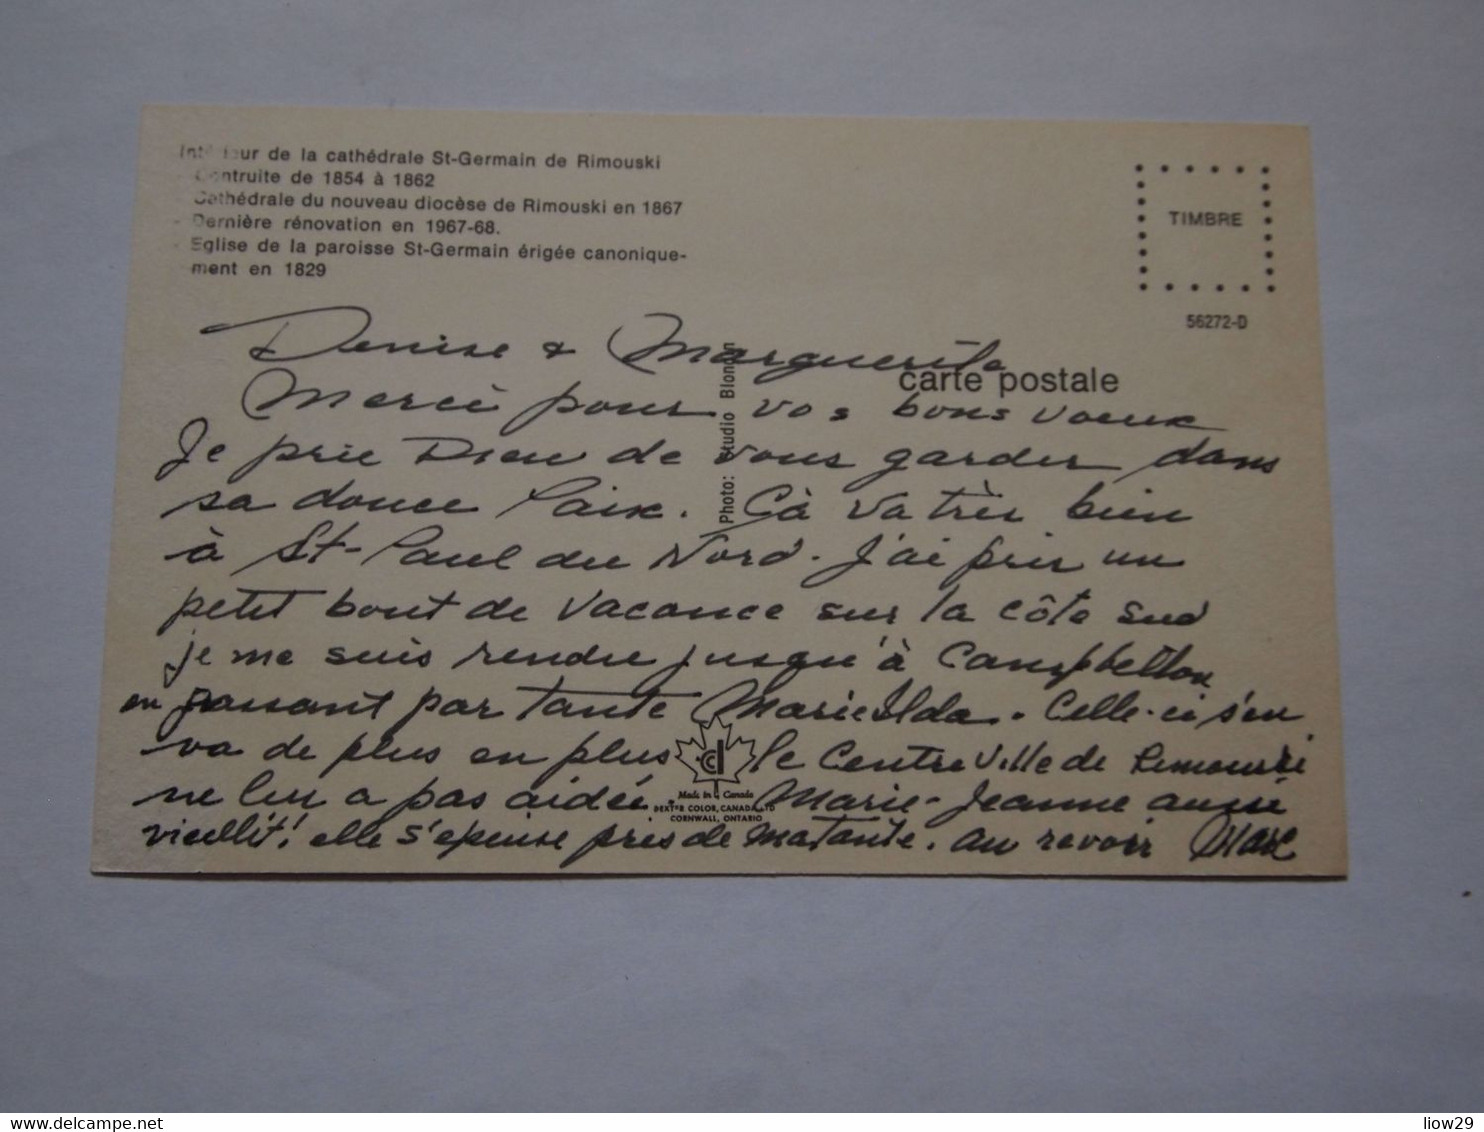 Intérieur de la cathédrale St-Germain de Rimouski
- Contruite de 1854 à 1862
- Cathédrale du nouveau diocèse de Rimouski en 1867
- Dernière rénovation en 1967-68.
- Eglise de la paroisse St-Germain érigée canonique-
ment en 1829
TIMBRE
56272-D
carte postale
Photo: Studio Blondin
Denise & Marguerite
Merci pour vos bons voeux
Je prie Dieu de vous garder dans
sa douce Paix. Cà va très bien
à St-Paul du Nord. J'ai pris un
petit bout de vacance sur la côte sud
je me suis rendre jusqu'à Campbellton
en passant par tante Marie Ilda. Celle-ci s'en
va de plus en plus le Centre Ville de Rimouski
ne lui a pas aidée. Marie-Jeanne aussi
vieillit! elle s'épuise près de ma tante. au revoir Marc
Made in Canada
DEXTER COLOR, CANADA, LTD
CORNWALL, ONTARIO
delcampe.net
liow29